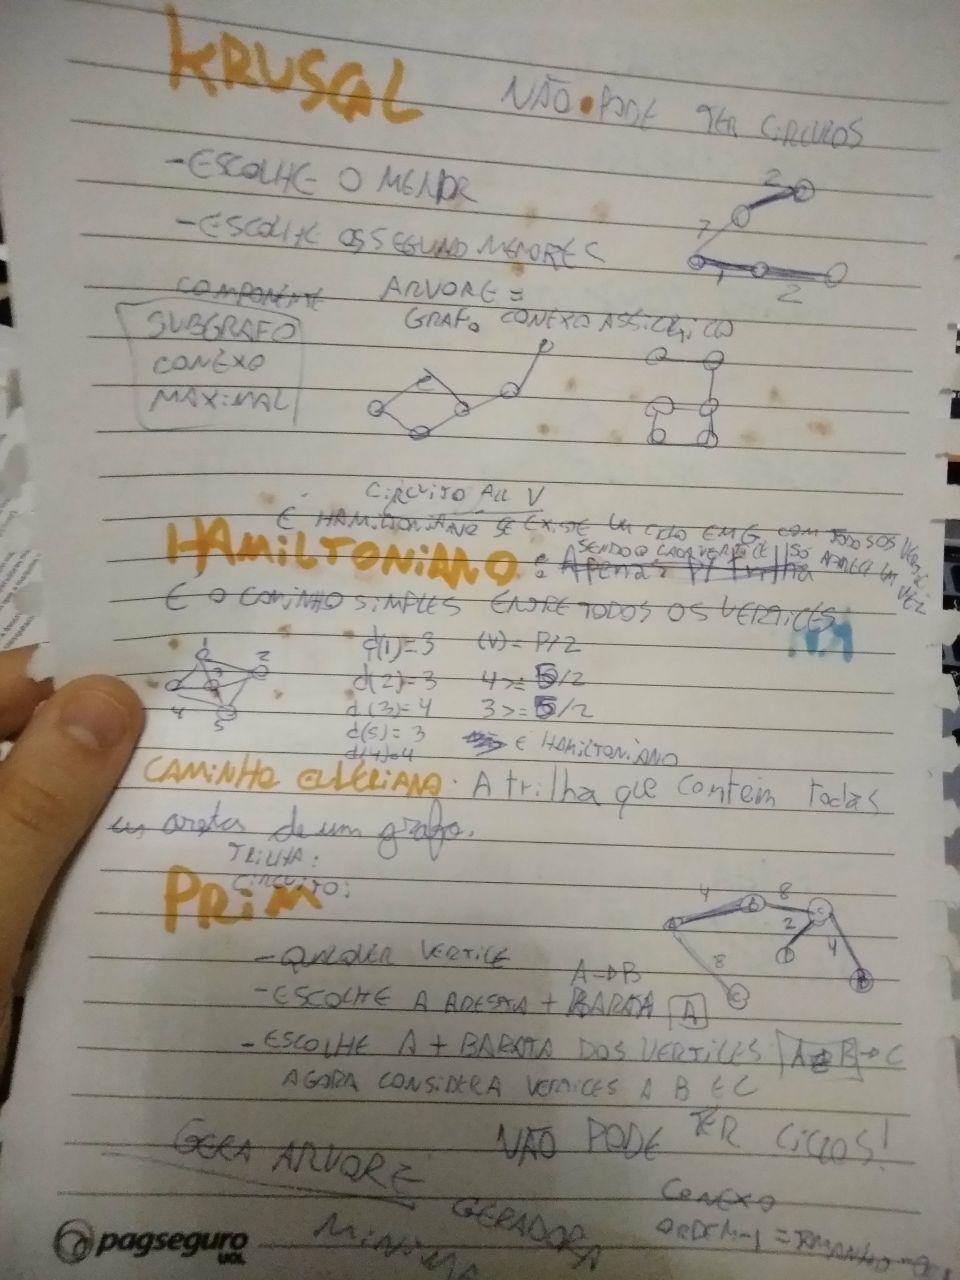 KRUSCAL
NÃO PODE TER CIRCUITOS
- ESCOLHE O MENOR
2
7
1
2
- ESCOLHE OS SEGUND MENORES
COMPONENTE
SUBGRAFO
CONEXO
MAXIMAL
ARVORE =
GRAFO CONEXO ASSICLICO
CIRCUITO ALL V
É HAMILTONIANO SE EXISTE UM CICLO EM G COM TODOS OS
SENDO Q CADA VERTICE SÓ APARECE VEZ
HAMILTONIANO : Apenas trilha
É O CAMINHO SIMPLES ENTRE TODOS OS VERTICES
1
2
3
4
5
d(1)=3 (V)= P/2
d(2)=3 4>= 5/2
d(3)=4 3>= 5/2
d(5)=3 É HAMILTONIANO
d(4)=4
CAMINHO EULERIANO: A trilha que contem todas
as arestas de um grafo.
TRILHA:
CIRCUITO:
PRIM
4 8
A B C
2
D
4
8
E
- QUALQUER VERTICE
A→B
- ESCOLHE A ARESTA + BARATA A
- ESCOLHE A + BARATA DOS VERTICES A B → C
AGORA CONSIDERA VERTICES A B E C
NÃO PODE TER CICLOS!
GERA ARVORE
GERADORA
MINIMA
CONEXO
ORDEM-1 = TAMANHO
pagseguro
UOL